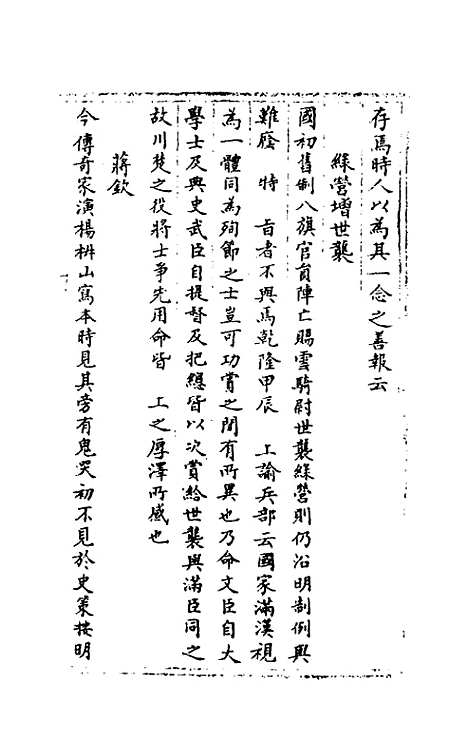 存焉時人以為其一念之善報云
綠營增世襲
國初舊制八旗官員陣亡賜雲騎尉世襲綠營則仍沿明制例與
難廕 特 旨者不與焉乾隆甲辰 上諭兵部云國家滿漢視
為一體同為殉節之士豈可功賞之間有所異也乃命文臣自大
學士及典史武臣自提督及把總皆以次賞給世襲與滿臣同之
故川楚之役將士爭先用命皆 上之厚澤所感也
蔣欽
今傳奇家演楊椒山寫本時見其旁有鬼哭初不見於史策按明